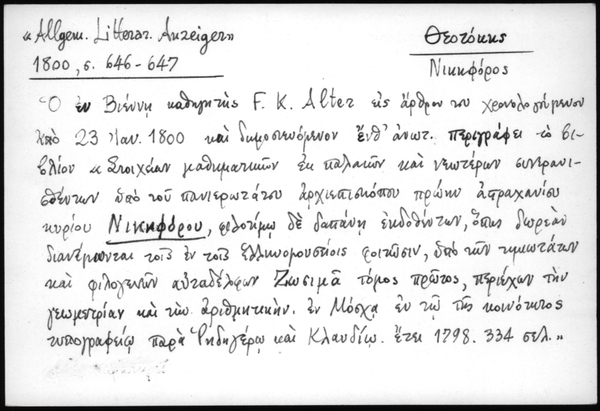 «Allgem. Litterar. Anzeiger»
1800, σ. 646-647
Θεοτόκης
Νικηφόρος
Ὁ ἐν Βιέννῃ καθηγητὴς F. K. Alter εἰς ἄρθρον του χρονολογούμενον
ἀπὸ 23 Ἰαν. 1800 καὶ δημοσιευόμενον ἔνθ' ἀνωτ. περιγράφει τὸ βι-
βλίον «Στοιχείων μαθηματικῶν ἐκ παλαιῶν καὶ νεωτέρων συνερανι-
σθέντων ὑπὸ τοῦ πανιερωτάτου ἀρχιεπισκόπου πρώην ἀστραχανίου
κυρίου Νικηφόρου, φιλοτίμῳ δὲ δαπάνῃ ἐκδοθέντων, ὅπως δωρεὰν
διανέμωνται τοῖς ἐν τοῖς ἑλληνομουσείοις φοιτῶσιν, ὑπὸ τῶν τιμιωτάτων
καὶ φιλογενῶν αὐταδέλφων Ζωσιμᾶ τόμος πρῶτος, περιέχων τὴν
γεωμετρίαν καὶ τὴν ἀριθμητικήν. ἐν Μόσχᾳ ἐν τῷ τῆς κοινότητος
τυπογραφείῳ παρὰ Ῥιδηγέρῳ καὶ Κλαυδίῳ. ἔτει 1798. 334 σελ.»